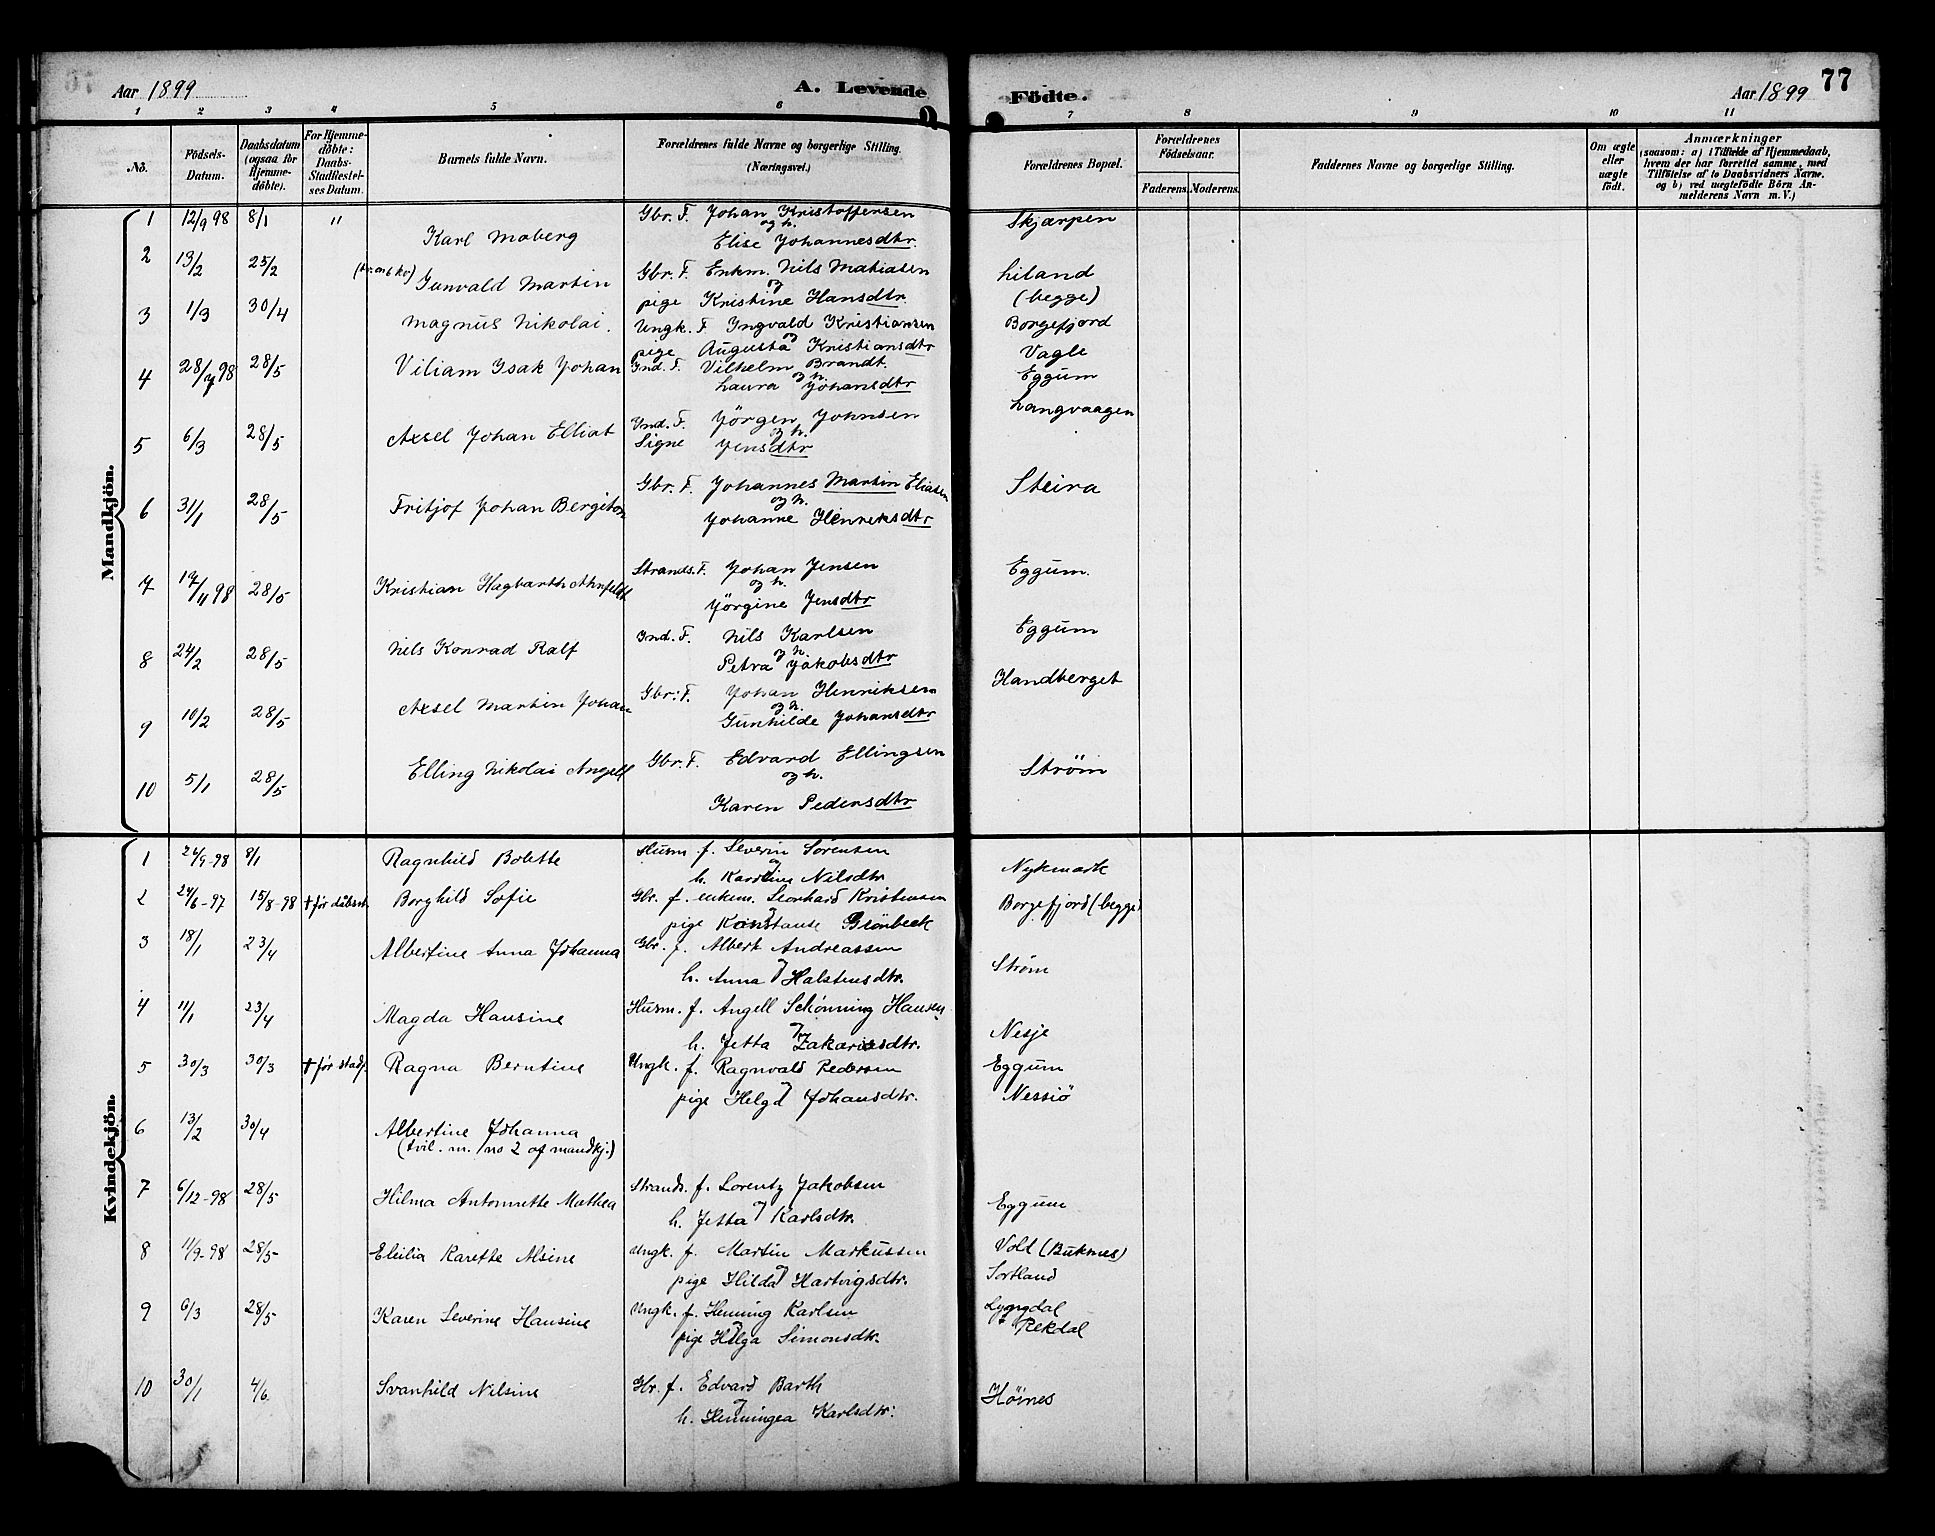 Aar 1899
A. Levende
Födte.
Aar 1899
77
1 2 3 4 5 6 7 8 9 10 11
No.
Födsels-Datum.
Daabsdatum (ogsaa for Hjemmedöbte).
For Hjemmedöbte: Daabs-Stadfæstelses Datum.
Barnets fulde Navn.
Forældrenes fulde Navne og borgerlige Stilling. (Næringsvei.)
Forældrenes Bopæl.
Forældrenes Födselsaar.
Faderens. Moderens.
Faddernes Navne og borgerlige Stilling.
Om ægte eller uægte födt.
Anmærkninger
(saasom: a) i Tilfælde af Hjemmedaab, hvem der har forrettet samme, med Tilföielse af to Daabsvidners Navne, og b) ved uegtefödte Börn Anmelderens Navn m. V.)
Mandkjön.
1 12/9 98 8/1 " Karl Moberg Gbr. F. Johan Kristoffersen Skjærpen
og h.
Elise Johannesdtr.
2 13/2 25/2 Gunvald Martin Gbr. F. Enkm. Nils Matiasen Liland
og
pige Kristine Hansdtr. (begge)
3 1/3 30/4 Magnus Nikolai. Ungk. F. Ingvald Kristiansen Borgefjord
og
pige Augusta Kristiansdtr Vagle
4 28/7 98 28/5 Viliam Isak Johan Ind. F. Vilhelm Brandt. Eggum
og h.
Laura Johansdtr
5 6/3 28/5 Axsel Johan Elliat Ind. F. Jörgen Johnsen Langvaagen
og h.
Signe Jensdtr
6 31/1 28/5 Fritjof Johan Bergiton Gbr. F. Johannes Martin Eliasen Steira
og h.
Johanne Henriksdtr
7 17/11 98 28/5 Kristian Hagbarth Ahnfeldt Strands. F. Johan Jensen Eggum.
og h.
Jörgine Jensdtr
8 24/2 28/5 Nils Konrad Ralf Ind. F. Nils Karlsen Eggum
og h.
Petra Jakobsdtr
9 10/2 28/5 Axsel Martin Johan Gbr: F. Johan Henriksen Handberget
og h.
Gunhilde Johansdtr
10 5/1 28/5 Elling Nikolai Angell Gbr. F. Edvard Ellingsen Strøm
og h.
Karen Pedersdtr
Kvindekjön.
1 24/9-98 8/1 Ragnhild Bolette Husm. f. Severin Sørensen Nykmark
og
h. Karoline Nilsdtr
2 24/6-97 15/8-98 † før dåbsst. Borghild Sofie Gbr. f. enkem. Leonhard Kristensen Borgefjord (begge)
og
pige Konstanse Grönbeck
3 18/1 23/4 Albertine Anna Johanna Gbr. f. Albert Andreassen Strøm
og
h. Anna Halstensdtr.
4 11/1 23/4 Magda Hansine Husm. f. Angell Schönning Hansen Nesje
og
h. Jetta Zakariasdtr.
5 30/3 30/3 † før stadf. Ragna Berntine Ungk. f. Ragnvald Pedersen Eggum
og
pige Helga Johansdtr. Nessiö
6 13/2 30/4 Albertine Johanna
(tvil. m. no 2 af mandkj.)
7 6/12-98 28/5 Hilma Antonnette Mathea Strands. f. Lorentz Jakobsen Eggum
og
h. Jetta Karlsdtr.
8 11/9-98 28/5 Elulia Karette Alsine Ungk. f. Martin Markussen Vold (Buknes)
og
pige Hilda Hartvigsdtr. Sortland
9 6/3 28/5 Karen Severine Hansine Ungk. f. Henning Karlsen Lyngdal
og
pige Helga Simonsdtr. Rekdal
10 30/1 4/6. Svanhild Nilsine Gbr. f. Edvard Barth Höines
og
h. Henningea Karlsdtr.